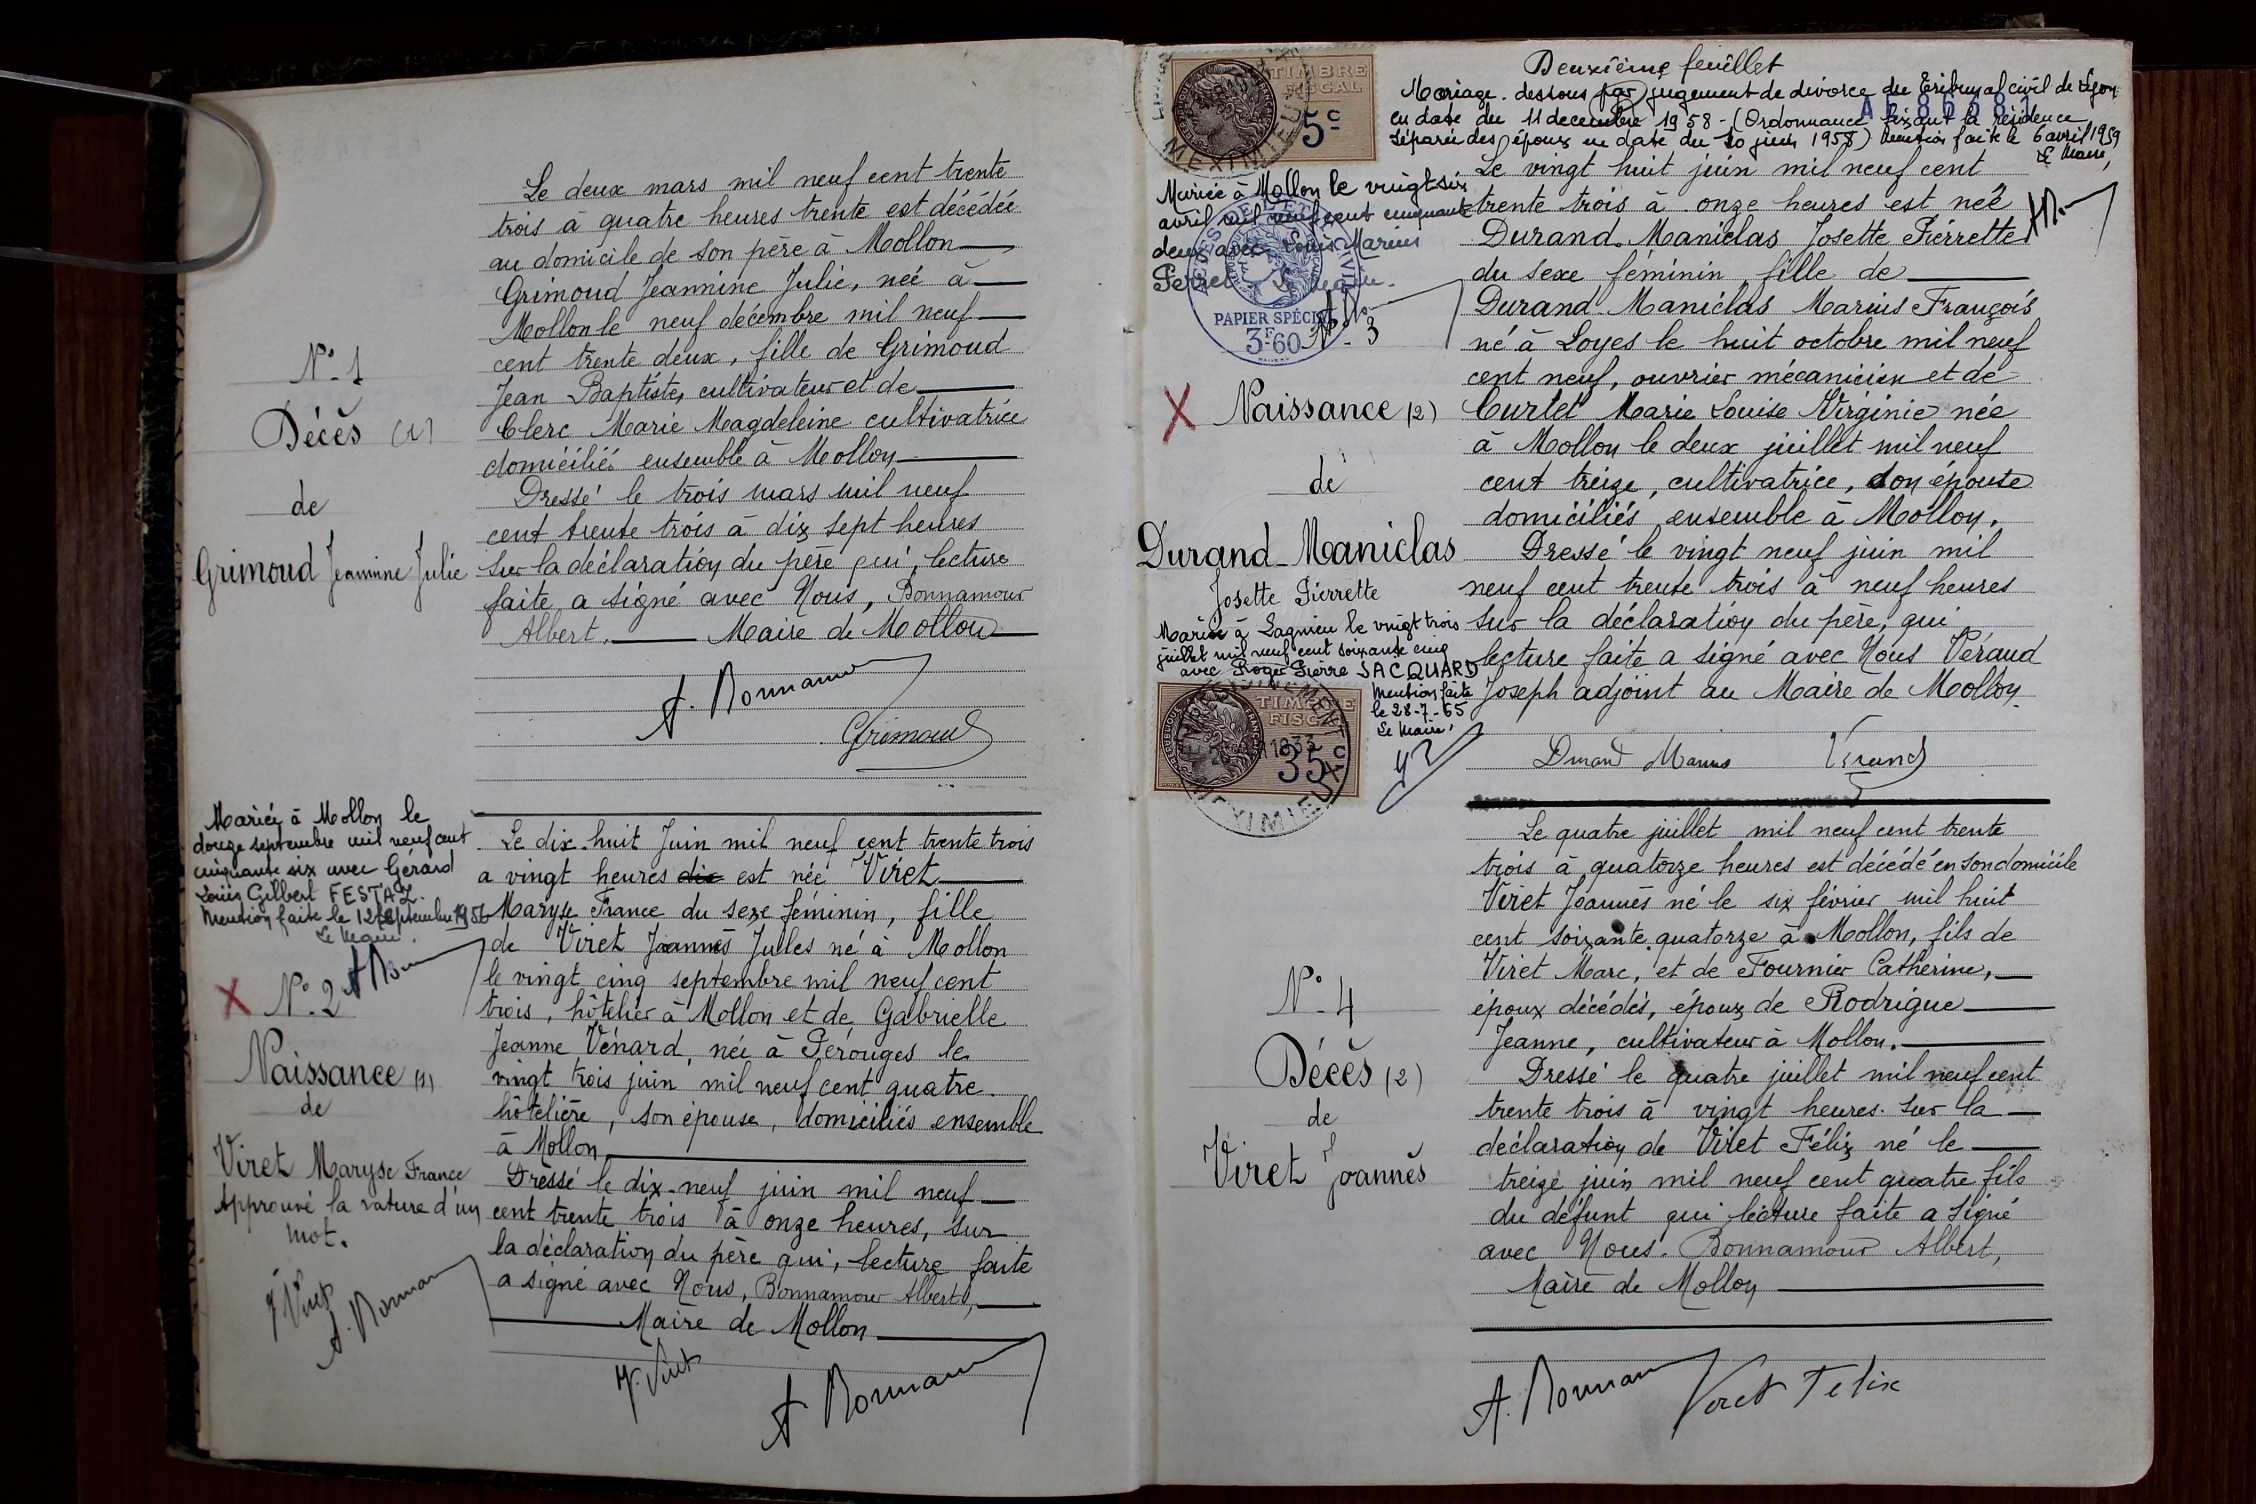 N°. 1
Décès (1)
de
Grimoud Jeannine Julie
Le deux mars mil neuf cent trente
trois à quatre heures trente est décédée
au domicile de son père à Mollon
Grimoud Jeannine Julie, née à
Mollon le neuf décembre mil neuf
cent trente deux, fille de Grimoud
Jean Baptiste, cultivateur et de
Clerc Marie Magdeleine cultivatrice
domiciliés ensemble à Mollon
Dressé le trois mars mil neuf
cent trente trois à dix sept heures
sur la déclaration du père qui, lecture
faite, a signé avec Nous, Bonnamour
Albert. Maire de Mollon
A. Bonnamour
Grimoud
Mariée à Mollon le
douze septembre mil neuf cent
cinquante six avec Gérard
Louis Gilbert FESTAZ.
Mention faite le 12 septembre 1956
Le Maire.
N°. 2
Naissance (1)
de
Viret Maryse France
Approuvé la rature d'un
mot.
J. Viret
A. Bonnamour
Le dix-huit Juin mil neuf cent trente trois
a vingt heures dix est née Viret
Maryse France du sexe féminin, fille
de Viret Joannès Jules né à Mollon
le vingt cinq septembre mil neuf cent
trois, hôtelier à Mollon et de Gabrielle
Jeanne Vénard, née à Pérouges le
vingt trois juin mil neuf cent quatre.
hôtelière, son épouse, domiciliés ensemble
à Mollon
Dressé le dix-neuf juin mil neuf
cent trente trois à onze heures, sur
la déclaration du père qui, lecture faite
a signé avec Nous, Bonnamour Albert,
Maire de Mollon
J. Viret
A. Bonnamour
Deuxième feuillet
TIMBRE
FISCAL
5c
MEXIMIEUX
Mariage dessous par jugement de divorce du Tribunal civil de Lyon
en date du 11 decembre 1958 - (Ordonnance fixant la résidence
séparée des époux en date du 20 juin 1958) Mention faite le 6 avril 1959
Le Maire,
Mariée à Mollon le vingt six
avril mil neuf cent cinquante
deux avec Louis Marius
Le Maire.
PAPIER SPÉCIAL
3F60
N°. 3
Naissance (2)
de
Durand-Maniclas
Josette Pierrette
Mariée à Lagnieu le vingt trois
juillet mil neuf cent soixante cinq
avec Roger Pierre JACQUARD
Mention faite
le 28-7-65
Le Maire,
TIMBRE
FISCAL
35c
MEXIMIEUX
Le vingt huit juin mil neuf cent
trente trois à onze heures est née
Durand-Maniclas Josette Pierrette
du sexe féminin fille de
Durand-Maniclas Marius François
né à Loyes le huit octobre mil neuf
cent neuf, ouvrier mécanicien et de
Curtet Marie Louise Virginie née
à Mollon le deux juillet mil neuf
cent treize, cultivatrice, son épouse
domiciliés ensemble à Mollon.
Dressé le vingt neuf juin mil
neuf cent trente trois à neuf heures
sur la déclaration du père, qui
lecture faite a signé avec Nous Véraud
Joseph adjoint au Maire de Mollon.
Durand Marius Véraud
N°. 4
Décès (2)
de
Viret Joannès
Le quatre juillet mil neuf cent trente
trois à quatorze heures est décédé en son domicile
Viret Joannès né le six février mil huit
cent soixante quatorze à Mollon, fils de
Viret Marc, et de Fournier Catherine,
époux décédés, époux de Rodrigue
Jeanne, cultivateur à Mollon.
Dressé le quatre juillet mil neuf cent
trente trois à vingt heures. sur la
déclaration de Viret Félix né le
treize juin mil neuf cent quatre fils
du défunt qui lecture faite a signé
avec Nous. Bonnamour Albert,
Maire de Mollon
A. Bonnamour Viret Felix